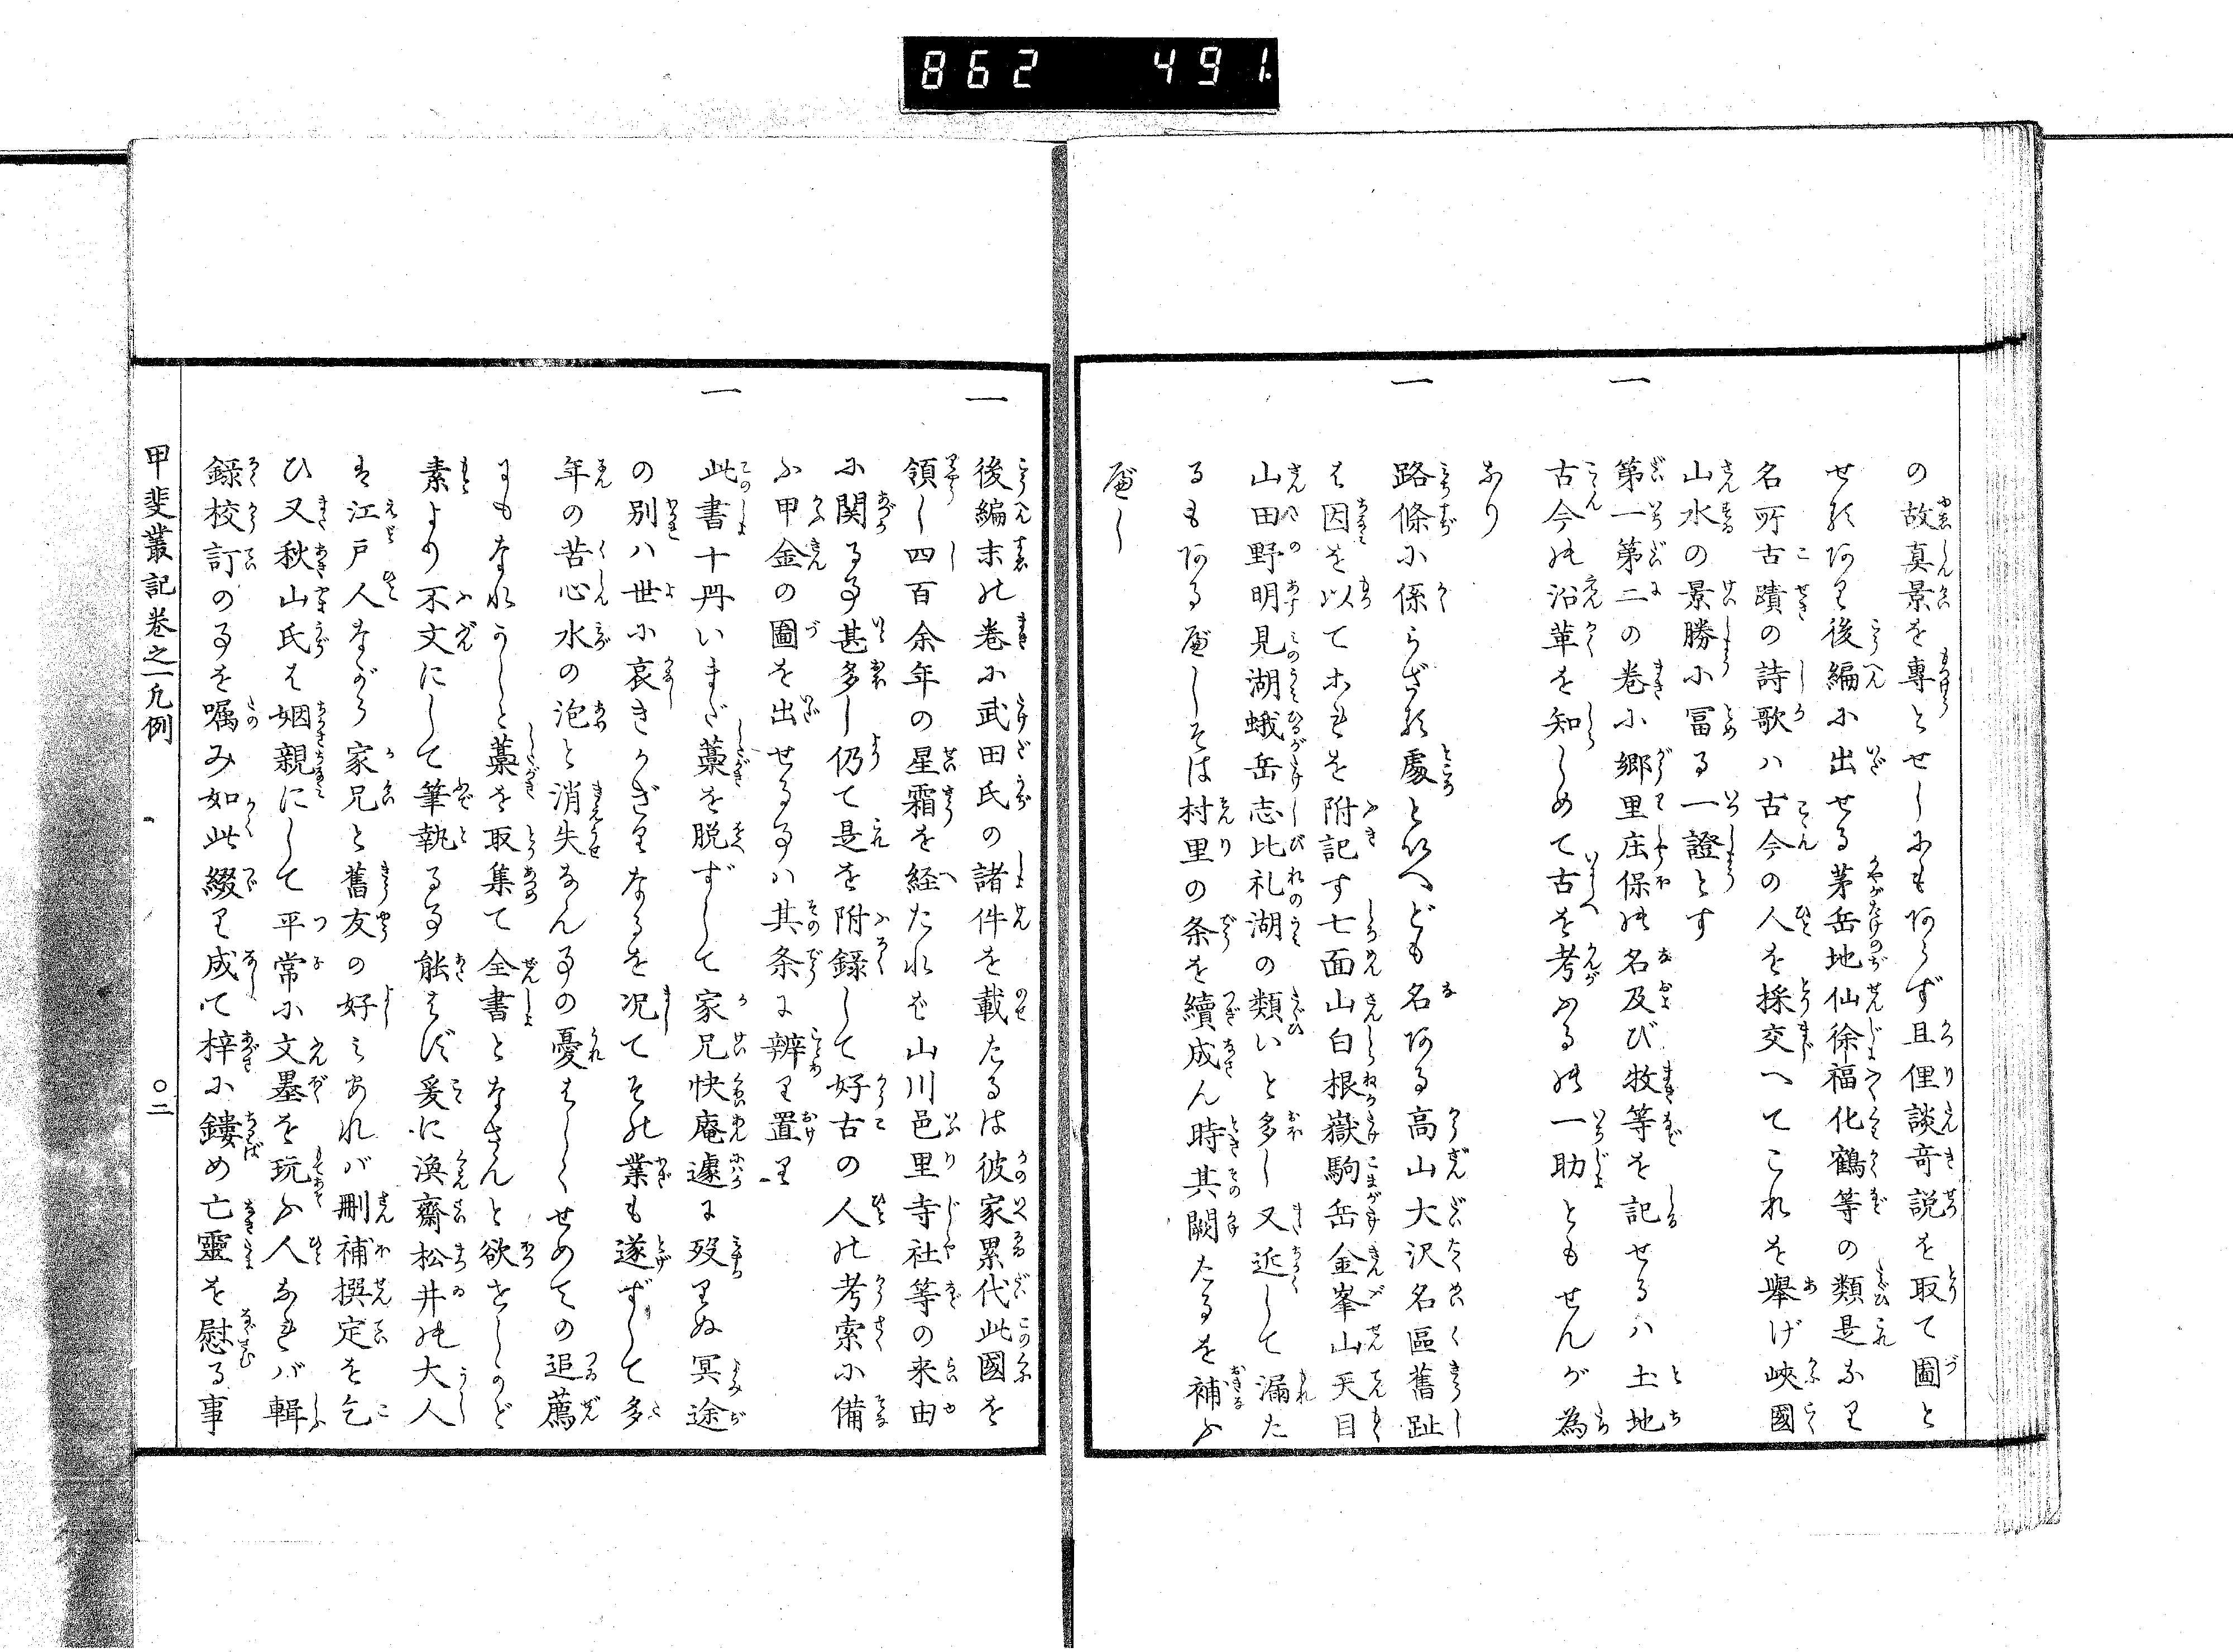 862 491
の故真景を專とせしにもあらず且俚談奇説を取て圖と
せるあり後編に出せる茅岳地仙徐福化鶴等の類是なり
名所古蹟の詩歌ハ古今の人を採交へてこれを擧げ峽國
山水の景勝に冨る一證とす
一 第一第二の巻に郷里庄保の名及び牧等を記せるハ土地
古今の沿革を知しめて古を考ふるの一助ともせんが為
なり
一 路條に係らざる處といへども名ある高山大沢名區舊趾
は因を以てこれを附記す七面山白根嶽駒岳金峯山天目
山田野明見湖蛾岳志比礼湖の類いと多し又近して漏た
るもあるべしそは村里の条を續成ん時其闕たるを補ふ
べし
一 後編末の巻に武田氏の諸件を載たるは彼家累代此國を
領し四百余年の星霜を経たれば山川邑里寺社等の来由
に関る事甚多し仍て是を附録して好古の人の考索に備
ふ甲金の圖を出せる事ハ其条に辨り置り
一 此書十冊いまだ藁を脱ずして家兄快庵遽に歿りぬ冥途
の別ハ世に哀きかぎりなるを况てその業も遂ずして多
年の苦心水の泡と消失なん事の憂はしくせめての追薦
にもなれかしと藁を取集て全書となさんと欲せしかど
素より不文にして筆執る事能はず爰に渙齋松井の大人
は江戸人ながら家兄と舊友の好みあれバ刪補撰定を乞
ひ又秋山氏は姻親にして平常に文墨を玩ふ人なれバ輯
録校訂の事を嘱み如此綴り成て梓に鏤め亡靈を慰る事
甲斐叢記巻之一凡例 〇二